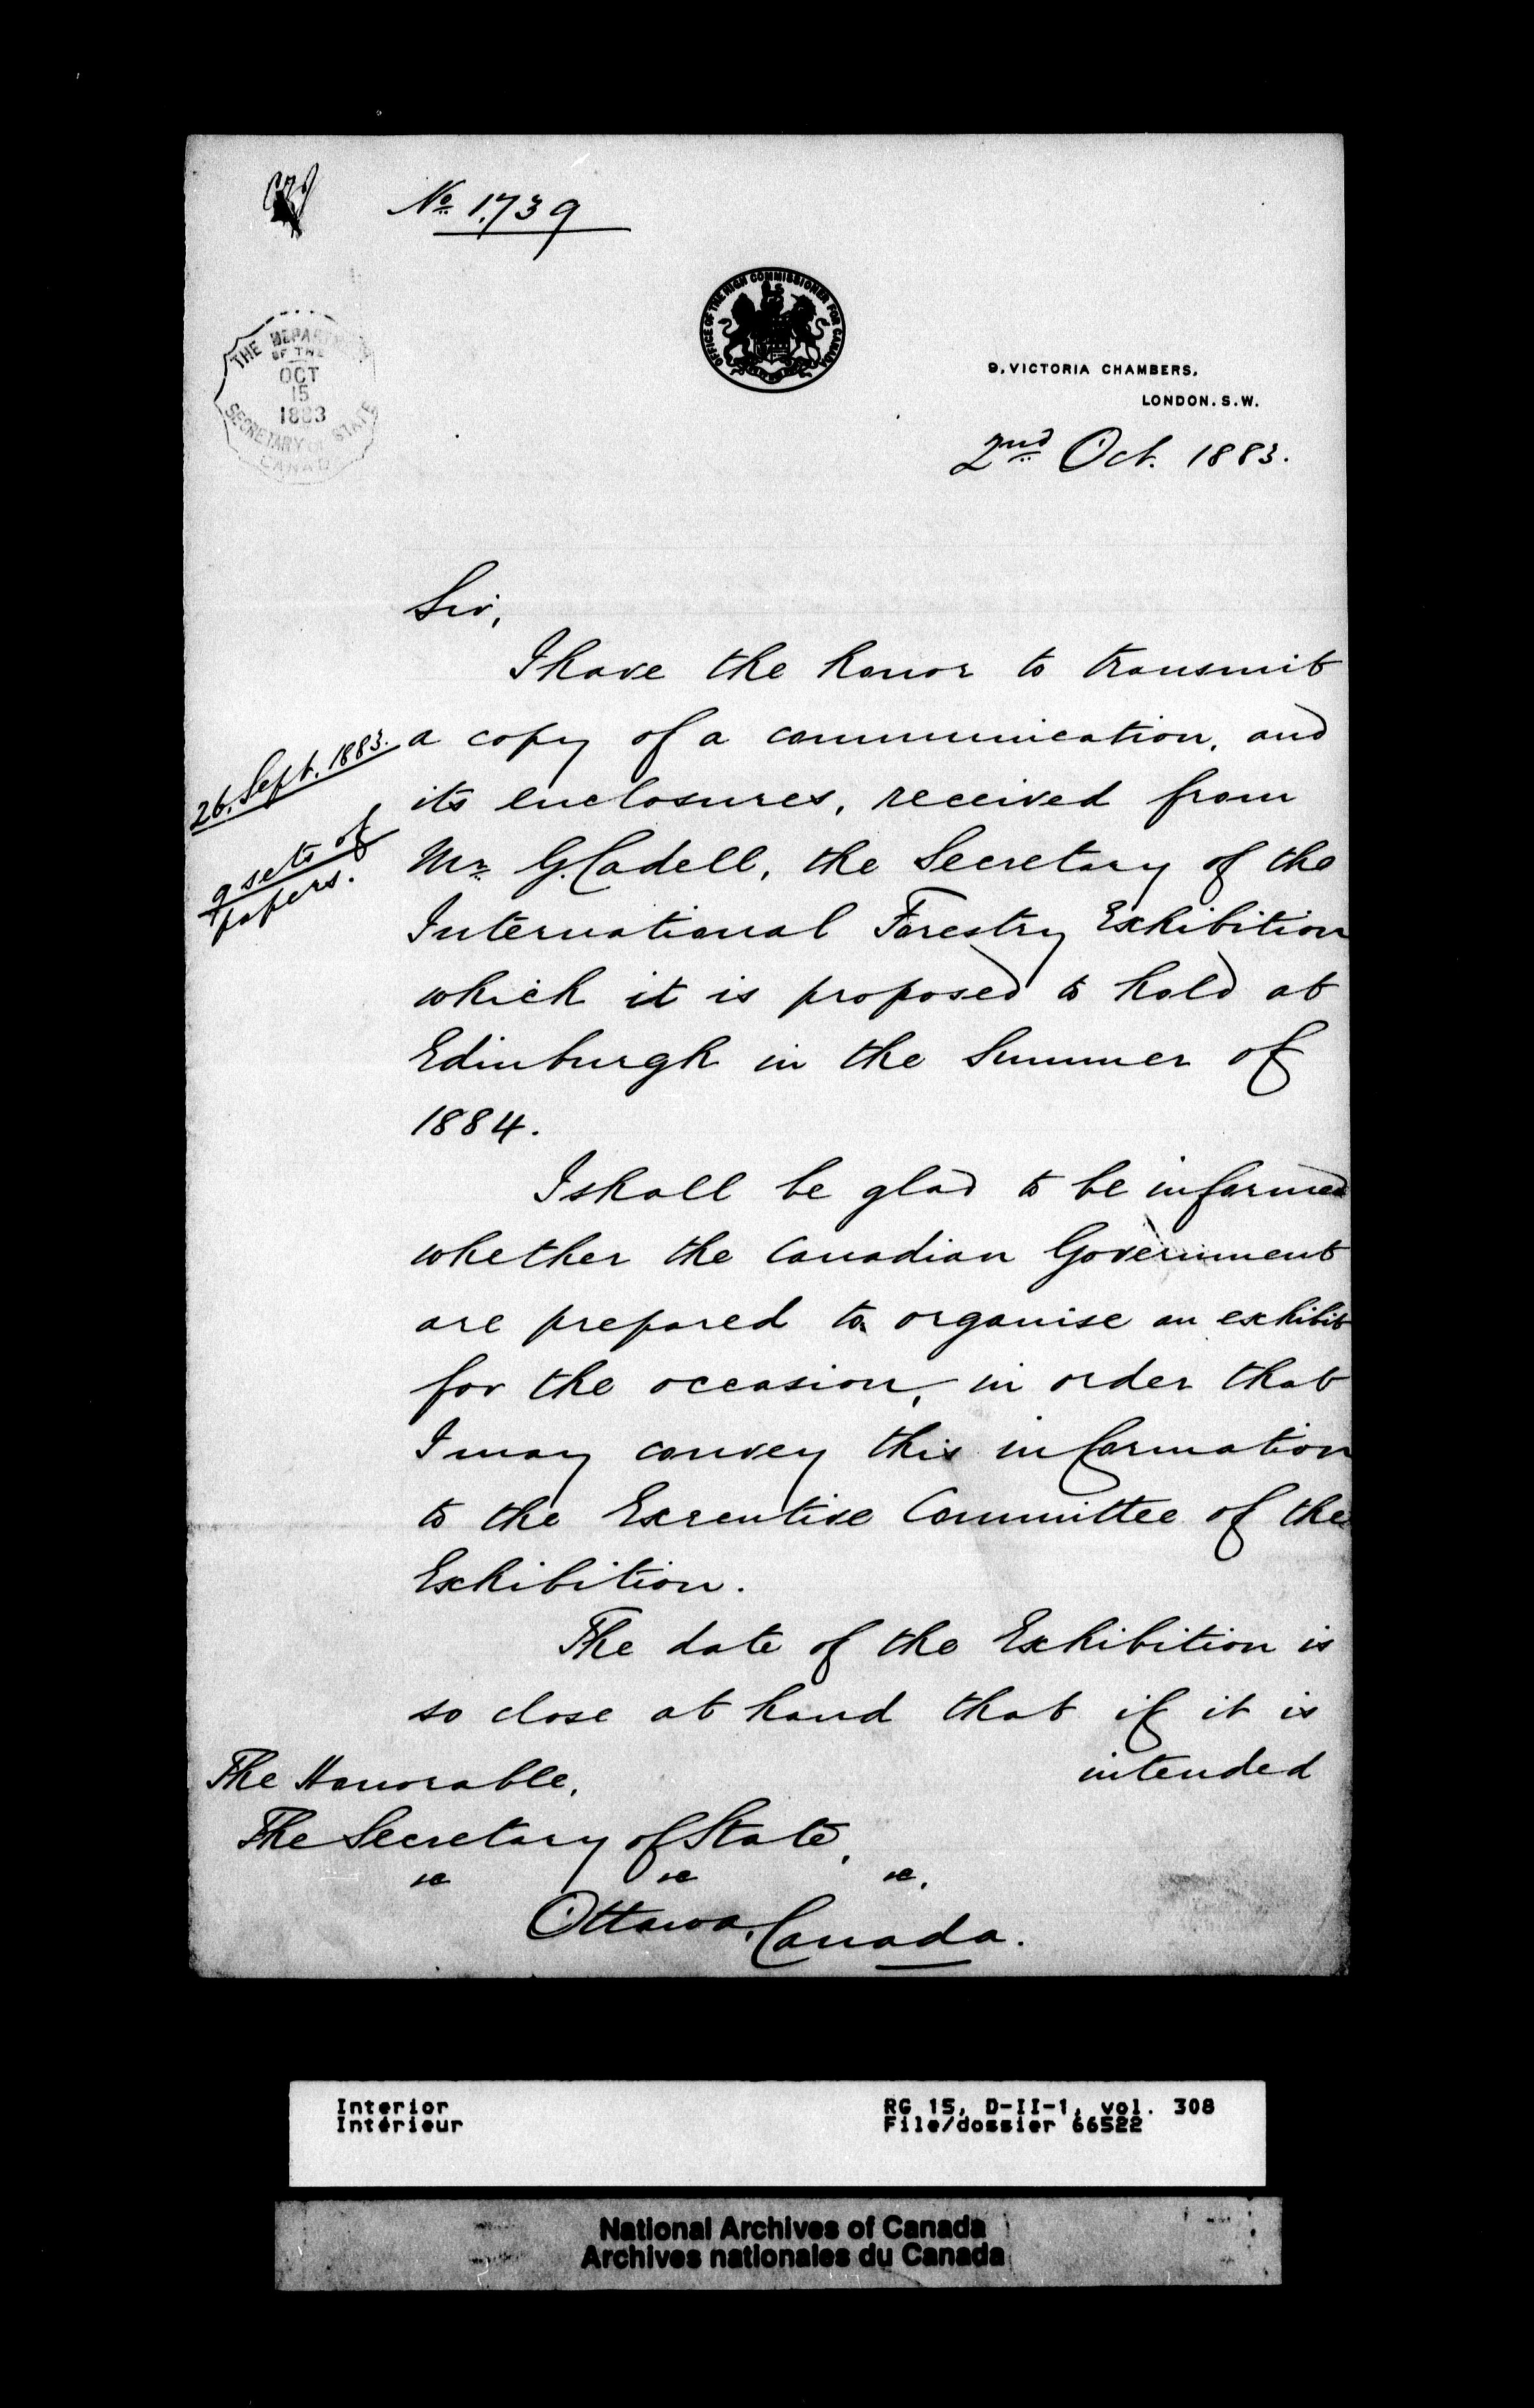 No 1739
OFFICE OF THE HIGH COMMISSIONER FOR CANADA
THE DEPARTMENT
OF THE
OCT
15
1883
SECRETARY OF STATE
CANADA
9, VICTORIA CHAMBERS,
LONDON. S.W.
2nd Oct. 1883.
Sir,
I have the honor to transmit
26. Sept. 1883.
a copy of a communication, and
its enclosures, received from
9 sets of
papers.
Mr. G. Cadell, the Secretary of the
International Forestry Exhibition
which it is proposed to hold at
Edinburgh in the Summer of
1884.
I shall be glad to be informed
whether the Canadian Government
are prepared to organise an exhibit
for the occasion, in order that
I may convey this information
to the Executive Committee of the
Exhibition.
The date of the Exhibition is
so close at hand that if it is
intended
The Honorable,
The Secretary of State,
&c &c &c.
Ottawa, Canada.
Interior
Intérieur
RG 15, D-II-1, vol. 308
File/dossier 66522
National Archives of Canada
Archives nationales du Canada